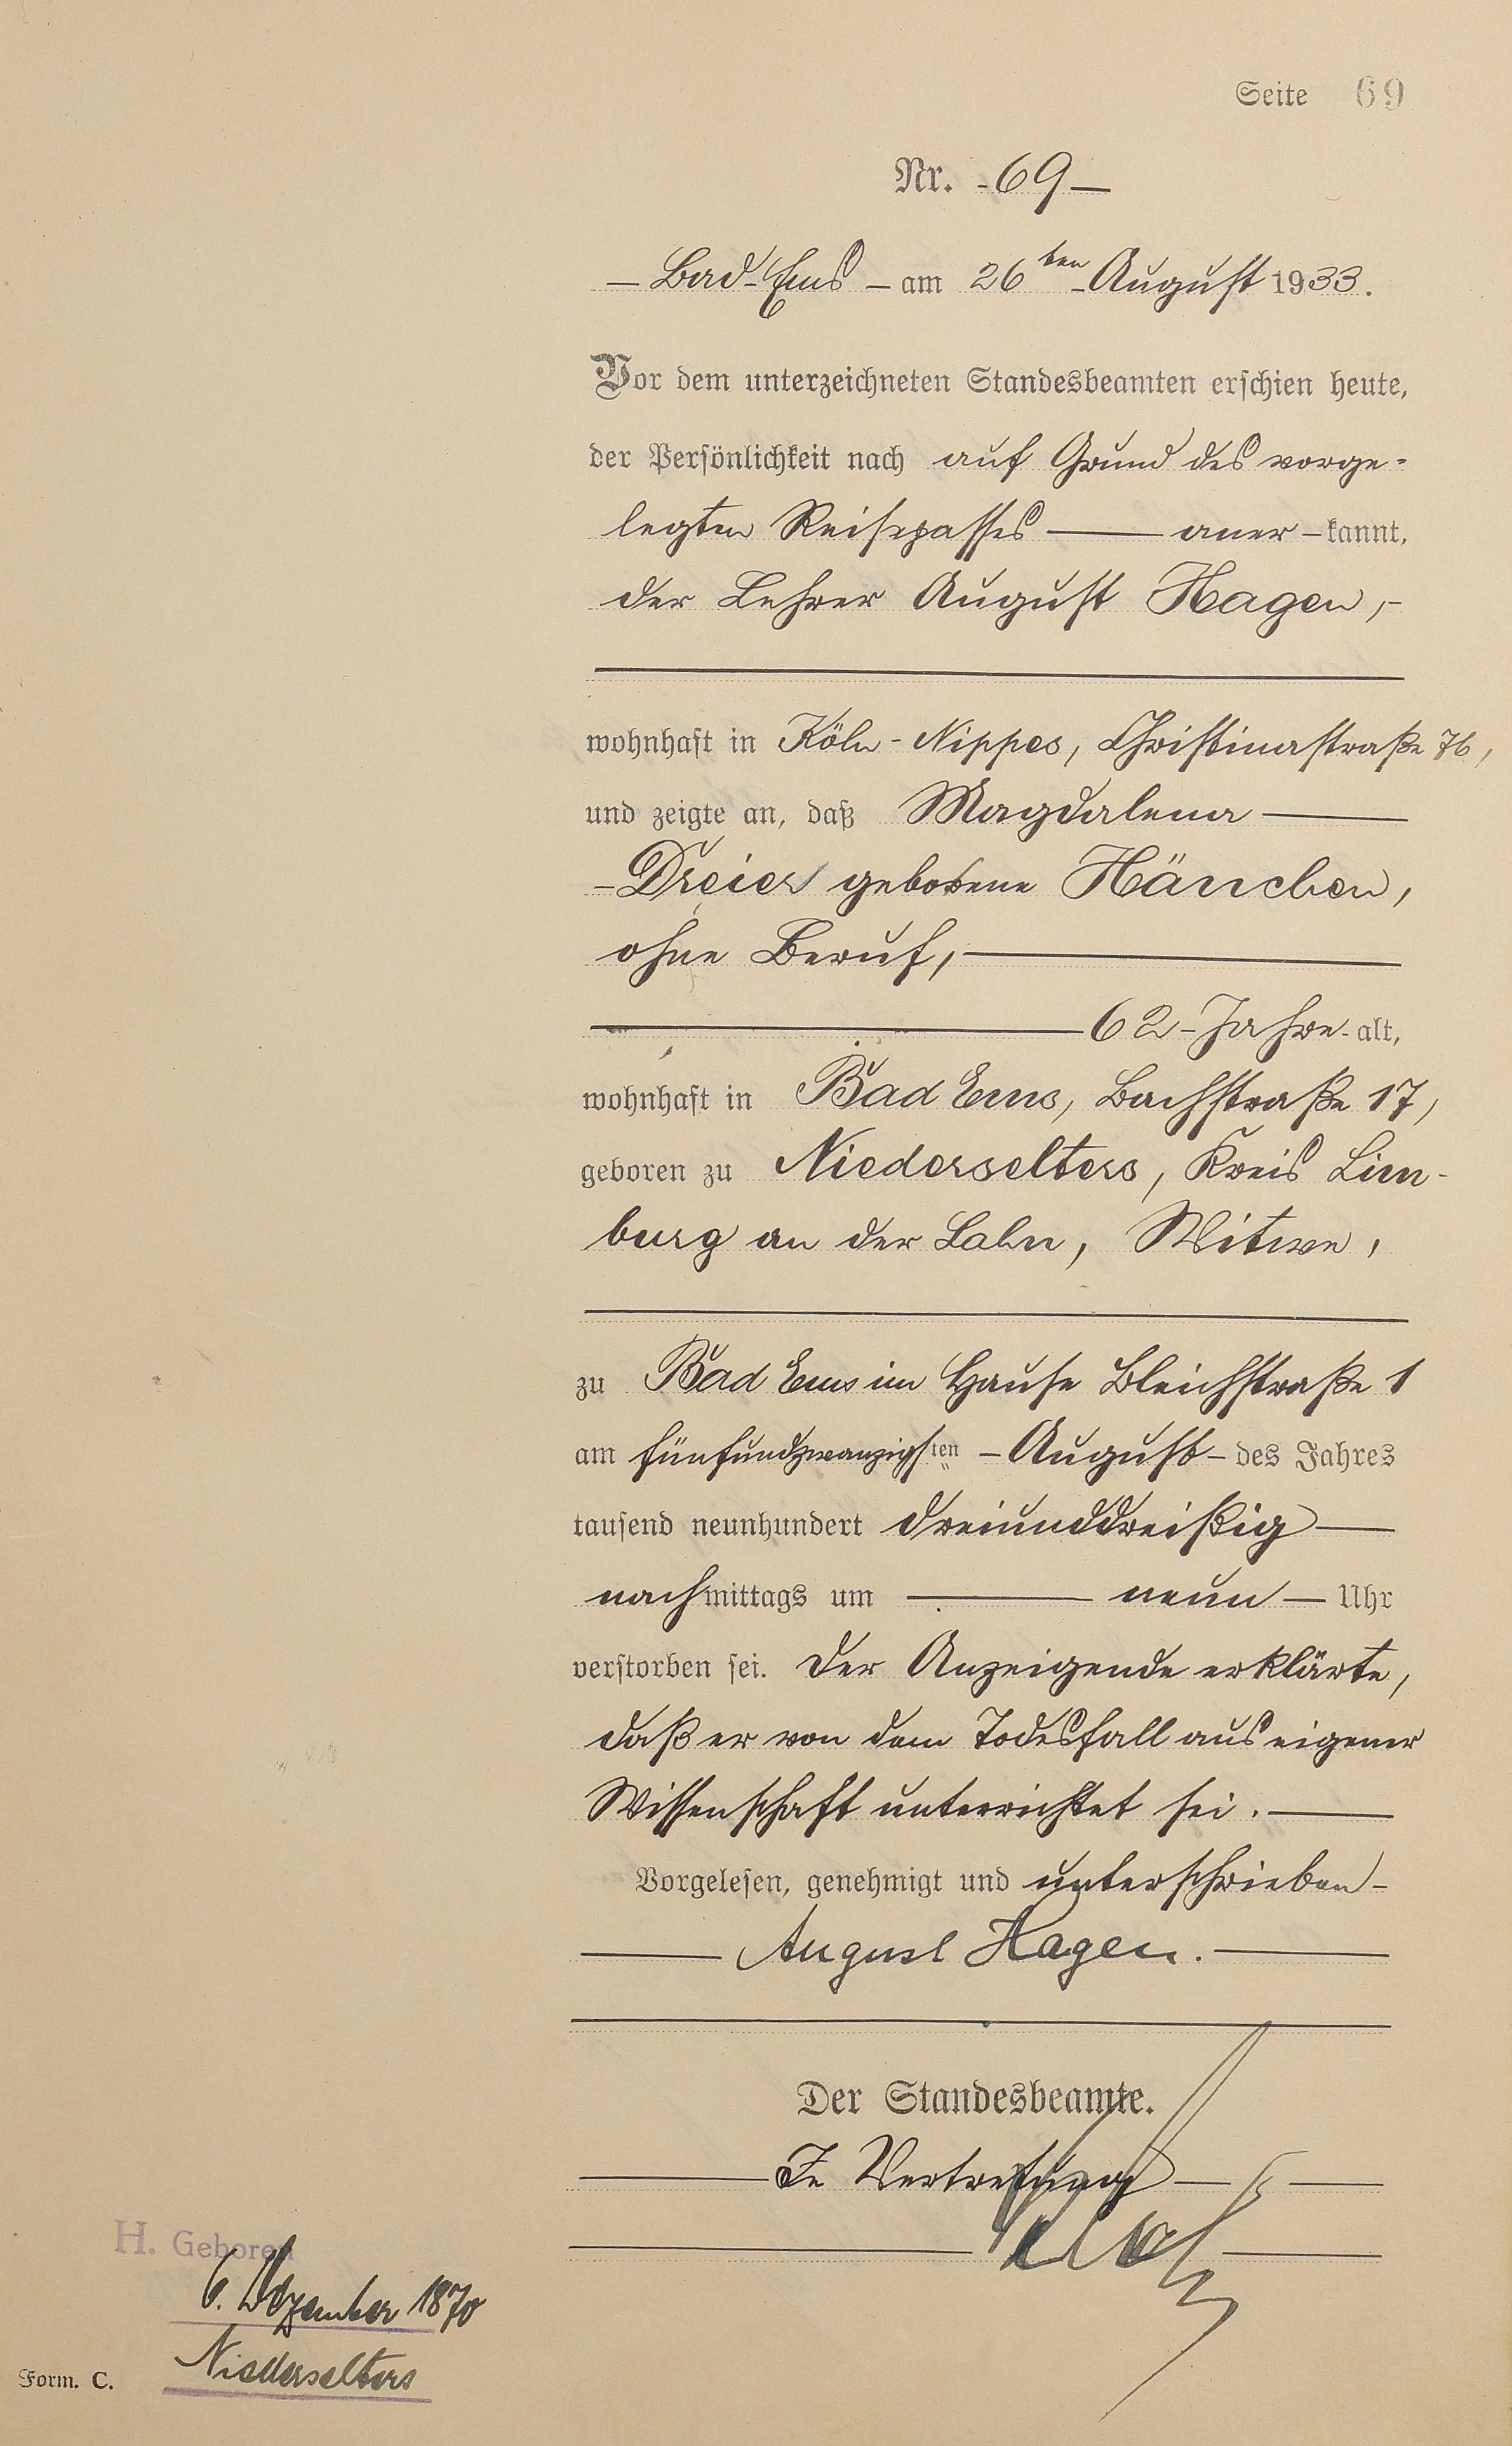 Seite 69
Nr. - 69 —
— Bad-Ems — am 26ten - August 1933.
Vor dem unterzeichneten Standesbeamten erschien heute,
der Persönlichkeit nach auf Grund des vorge-
legten Reisepasses — aner — kannt,
der Lehrer August Hagen, -
wohnhaft in Köln - Nippes, Christinastraße 76,
und zeigte an, daß Magdalena —
- Dreier geborene Hänchen,
ohne Beruf, —
— 62 - Jahre - alt,
wohnhaft in Bad Ems, Bachstraße 17,
geboren zu Niederselters, Kreis Lim-
burg an der Lahn, Witwe,
zu Bad Ems im Hause Bleichstraße 1
am fünfundzwanzigsten — August — des Jahres
tausend neunhundert dreiunddreißig —
nachmittags um — neun — Uhr
verstorben sei. Der Anzeigende erklärte,
daß er von dem Todesfall aus eigener
Wissenschaft unterrichtet sei. —
Vorgelesen, genehmigt und unterschrieben -
— August Hagen. —
Der Standesbeamte.
— In Vertretung —
H. Geboren
6. Dezember 1870
Niederselters
Form. C.